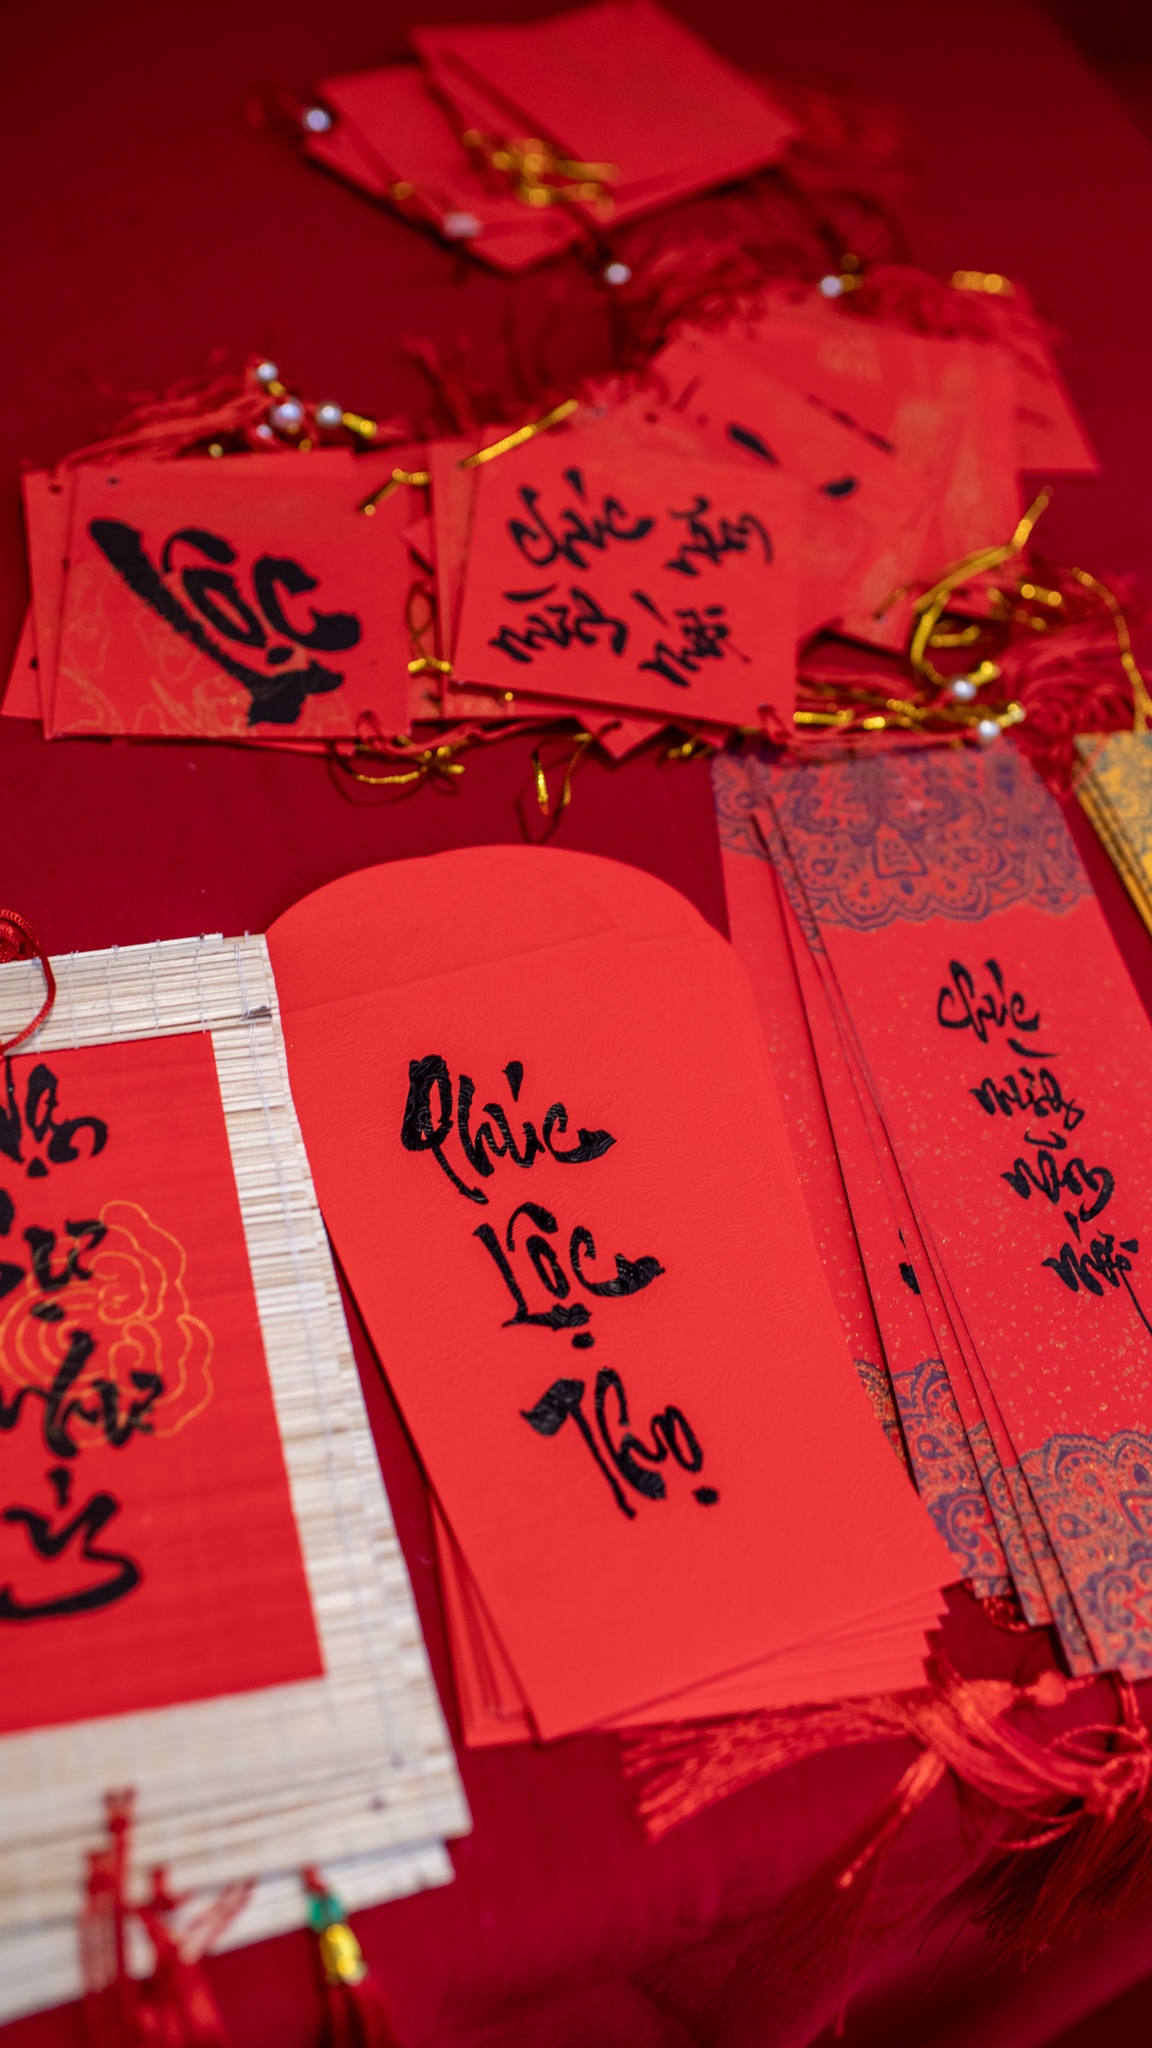 Lộc
Chúc
mừng
năm
mới
Chúc
mừng
năm
mới
Phúc
Lộc
Thọ
Vạn
sự
như
ý